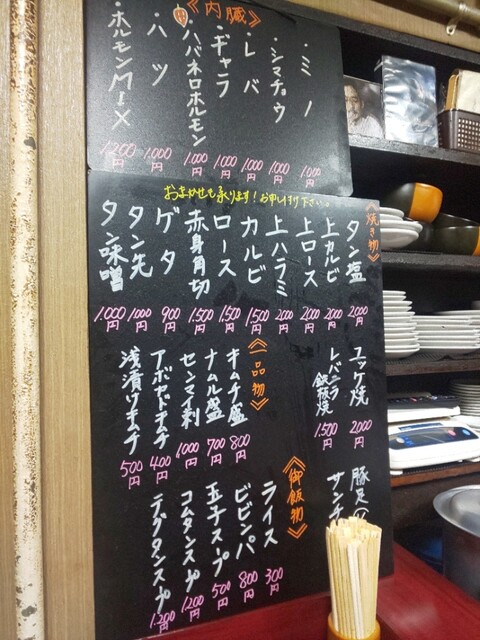 《内臓》
・ミノ 1,000円
・シマチョウ 1,000円
・レバ 1,000円
・ギャラ 1,000円
ハバネロホルモン 1,000円
・ハツ 1,000円
・ホルモンMIX 1,200円
おまかせも承ります!お申し付け下さい。
《焼き物》
タン塩 2,000円
上カルビ 2,000円
上ロース 2,000円
上ハラミ 2,000円
カルビ 1,500円
ロース 1,500円
赤身角切 1,500円
ゲタ 900円
タン先 1,000円
タン味噌 1,000円
ユッケ焼 2,000円
レバニラ鉄板焼 1,500円
豚足
サンチ
《一品物》
キムチ盛 800円
ナムル盛 700円
センマイ刺 1,000円
アボカドキムチ 400円
浅漬けキムチ 500円
《御飯物》
ライス 300円
ビビンバ 800円
玉子スープ 500円
コムタンスープ 1,200円
テグタンスープ 1,200円